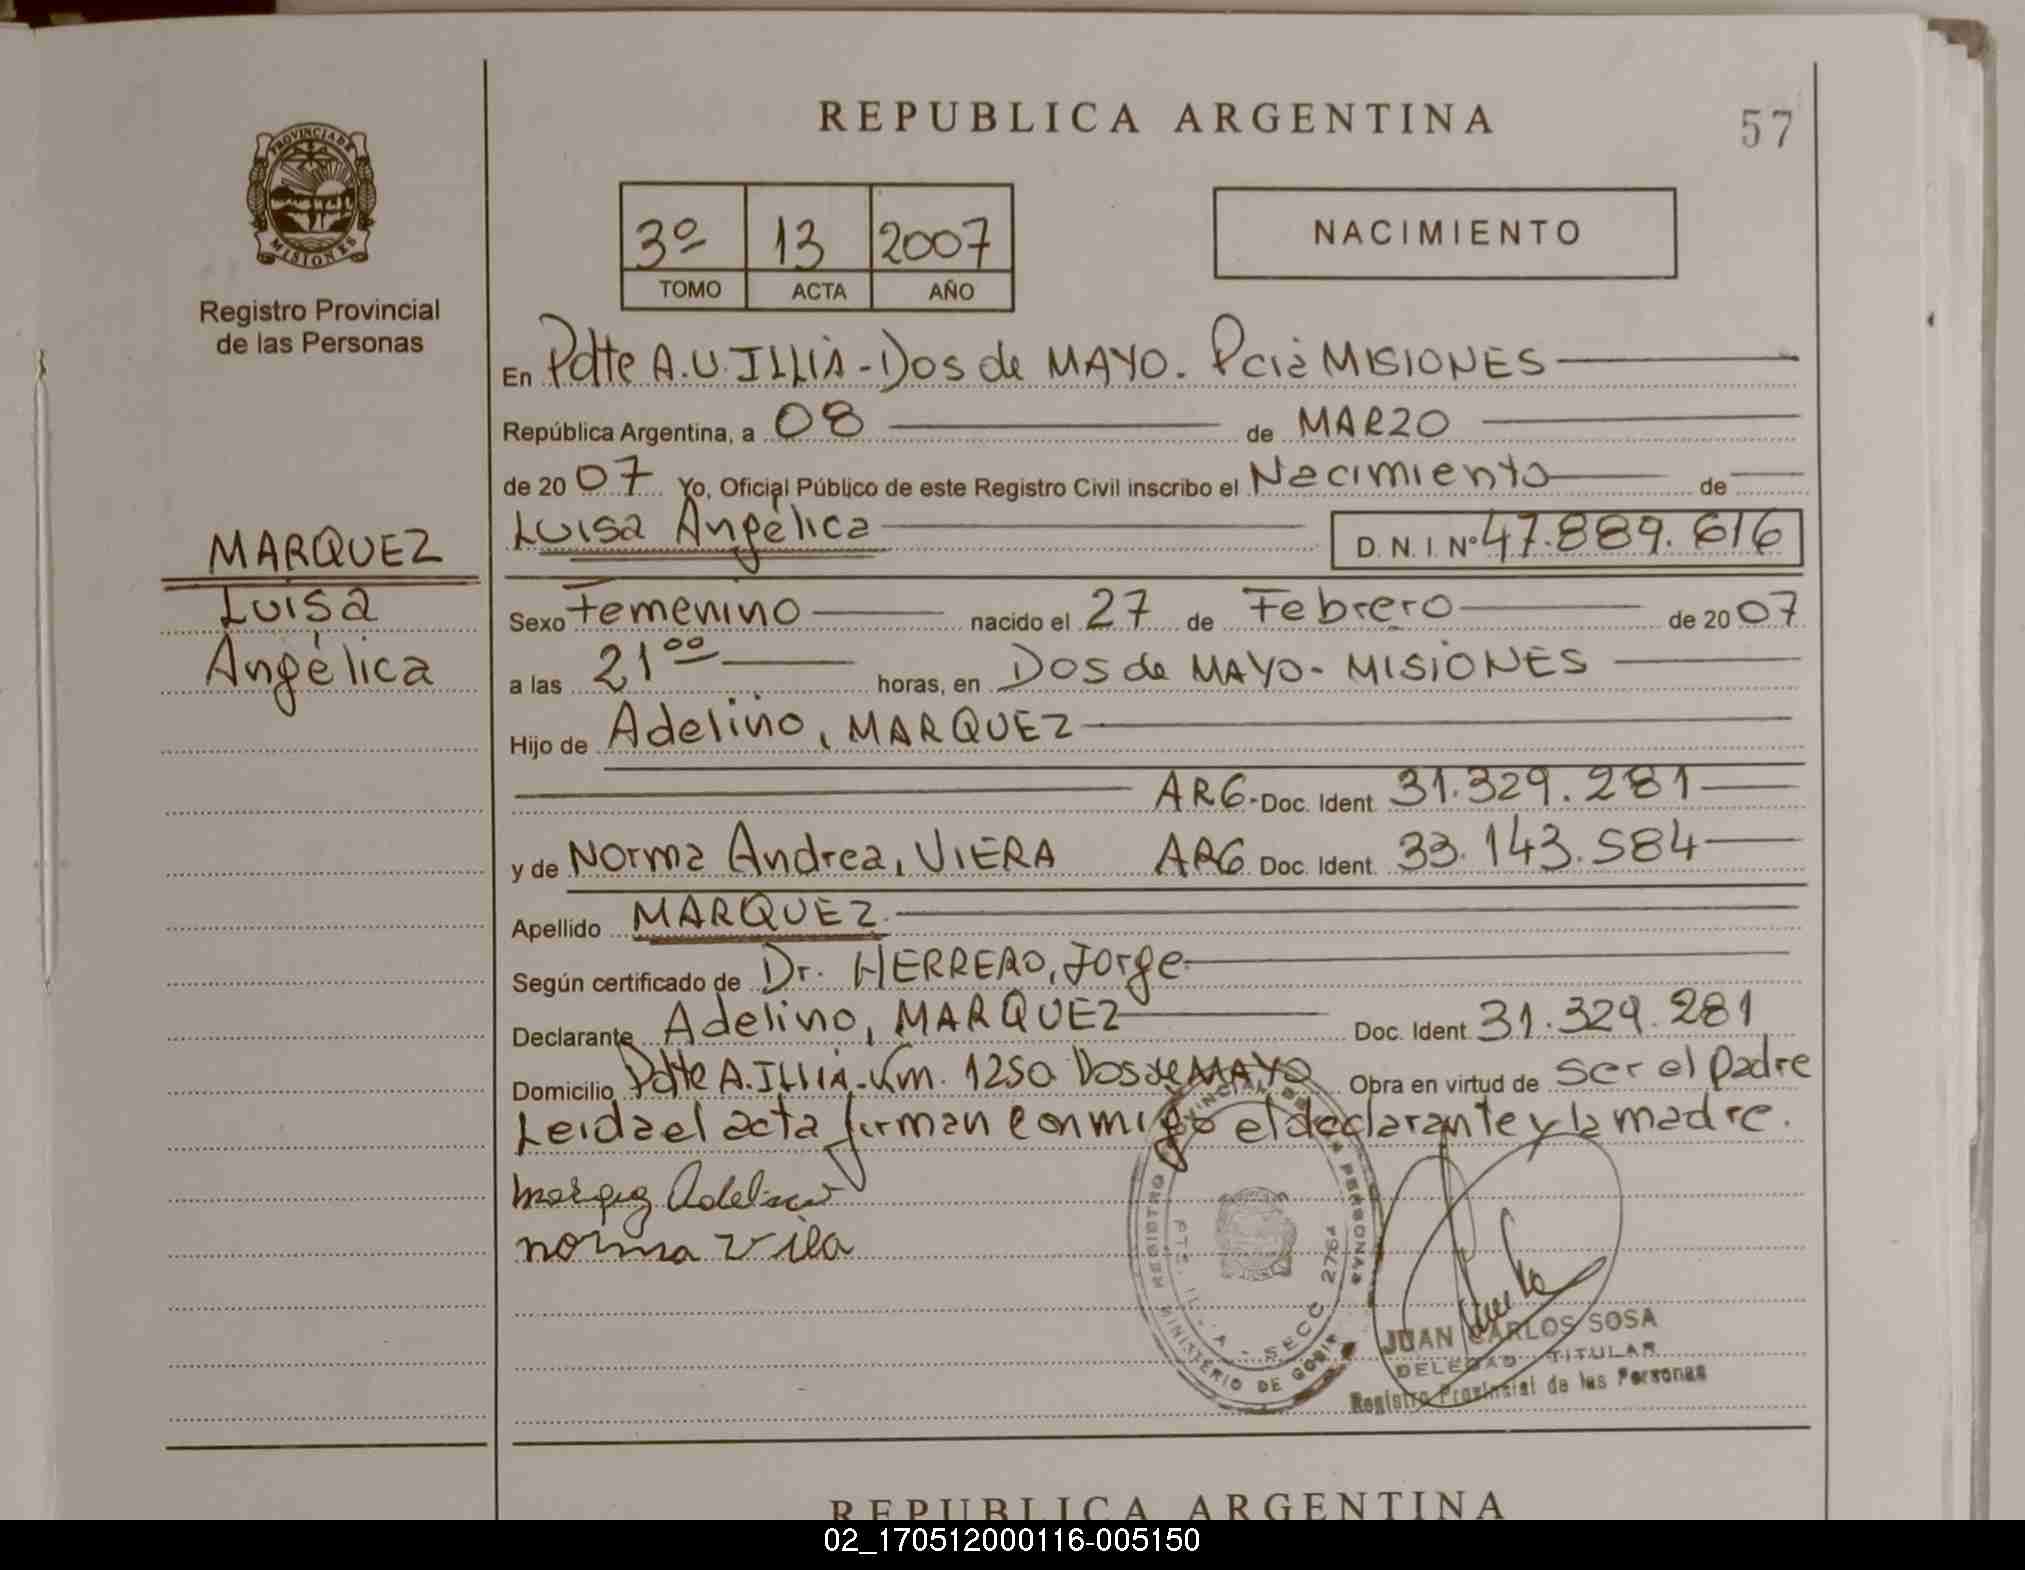 REPUBLICA ARGENTINA
57
PROVINCIA DE MISIONES
Registro Provincial
de las Personas
3º 13 2007
TOMO ACTA AÑO
NACIMIENTO
En Pdte A.U. ILLIA - Dos de MAYO. Pcia MISIONES
República Argentina, a 08 de MARZO
de 2007 Yo, Oficial Público de este Registro Civil inscribo el Nacimiento de
Luisa Angélica D.N.I. Nº 47.889.616
MARQUEZ
Luisa
Angélica
Sexo Femenino nacido el 27 de Febrero de 2007
a las 21⁰⁰ horas, en Dos de MAYO - MISIONES
Hijo de Adelino, MARQUEZ
ARG. Doc. Ident. 31.329.281
y de Norma Andrea, VIERA ARG Doc. Ident. 33.143.584
Apellido MARQUEZ.
Según certificado de Dr. HERRERO, Jorge
Declarante Adelino, MARQUEZ Doc. Ident. 31.329.281
Domicilio Pdte A. ILLIA - Km. 1250 Dos de MAYO Obra en virtud de ser el padre
Leida el acta firman conmigo el declarante y la madre.
norma
REGISTRO PROVINCIAL DE LAS PERSONAS
SECC 2764
MINISTERIO DE
JUAN CARLOS SOSA
DELEGADO TITULAR
Registro Provincial de las Personas
REPUBLICA ARGENTINA
02_170512000116-005150